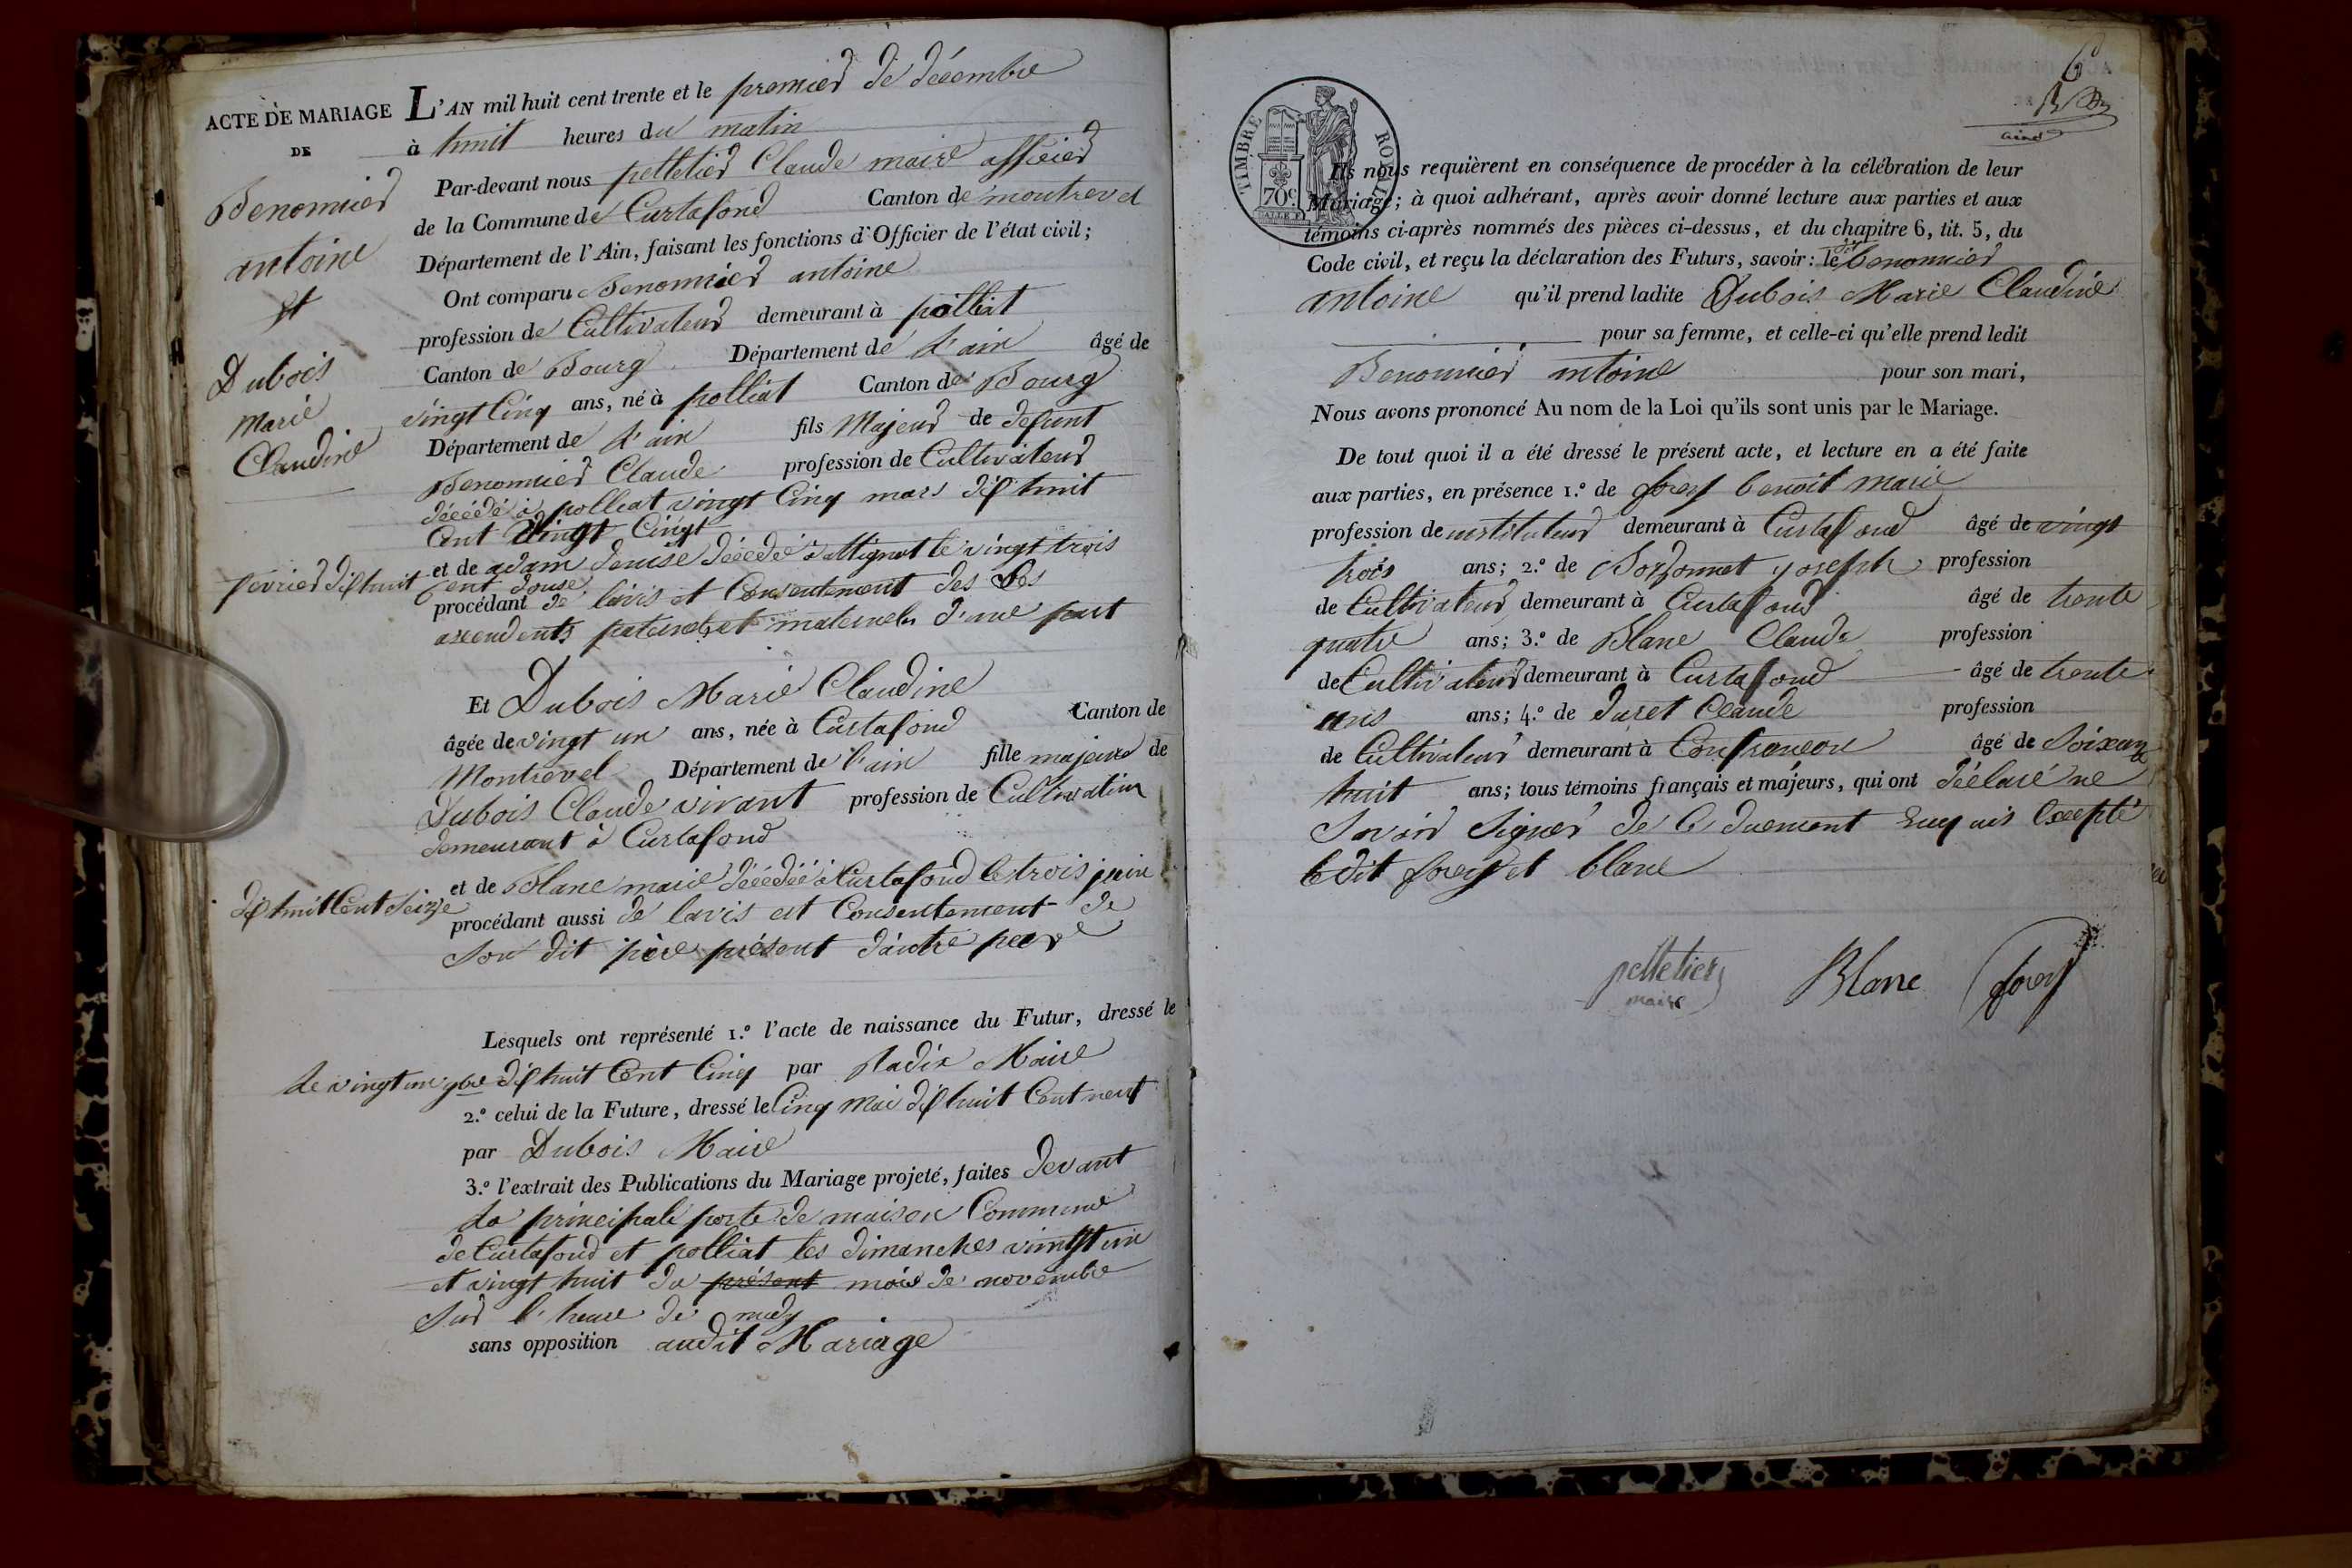 ACTE DE MARIAGE
DE
Benonnier
antoine
et
Dubois
Marie
Claudine
L'AN mil huit cent trente et le premier de décembre
à huit heures du matin
Par-devant nous pelletier Claude maire officier
de la Commune de Curtafond Canton de montrevel
Département de l'Ain, faisant les fonctions d'Officier de l'état civil;
Ont comparu Benonnier antoine
profession de Cultivateur demeurant à polliat
Canton de Bourg Département de l'ain âgé de
vingt Cinq ans, né à polliat Canton de Bourg
Département de l'ain fils Majeur de defunt
Benonnier Claude profession de Cultivateur
décédé à polliat vingt Cinq mars dix huit
Cent vingt Cinq
et de adam denise décédé à attignat le vingt trois
fevrier dix huit Cent douse
procédant de lavis et Consentement des ses
assendents paternels et maternels d'une part
Et Dubois Marie Claudine
âgée de vingt un ans, née à Curtafond Canton de
Montrevel Département de l'ain fille majeure de
Dubois Claude vivant profession de Cultivateur
demeurant à Curtafond
et de Blanc marie décédéé à Curtafond le trois juin
dix huit Cent Seize
procédant aussi de lavis et Consentement de
Son dit père présent d'autre part
Lesquels ont représenté 1.º l'acte de naissance du Futur, dressé le
le vingt un 9bre dix huit Cent Cinq par Radix Maire
2.º celui de la Future, dressé le Cinq Mai dix huit Cent neuf
par Dubois Maire
3.º l'extrait des Publications du Mariage projeté, faites devant
la principale porte de maison Commune
de Curtafond et polliat les dimanches vingt un
et vingt huit du présent mois de novembre
Sur l'heure de midy
sans opposition audit Mariage
6
TIMBRE ROYAL
70 C.
Ils nous requièrent en conséquence de procéder à la célébration de leur
Mariage; à quoi adhérant, après avoir donné lecture aux parties et aux
témoins ci-après nommés des pièces ci-dessus, et du chapitre 6, tit. 5, du
Code civil, et reçu la déclaration des Futurs, savoir: le dit benonnier
antoine qu'il prend ladite Dubois Marie Claudine
pour sa femme, et celle-ci qu'elle prend ledit
Benonnier antoine pour son mari,
Nous avons prononcé Au nom de la Loi qu'ils sont unis par le Mariage.
De tout quoi il a été dressé le présent acte, et lecture en a été faite
aux parties, en présence 1.º de forey benoit marie
profession de instituteur demeurant à Curtafond âgé de vingt
trois ans; 2.º de joseph profession
de Cultivateur demeurant à Curtafond âgé de trente
quatre ans; 3.º de Blanc Claude profession
de Cultivateur demeurant à Curtafond âgé de trente
ans; 4.º de Duret Claude profession
de Cultivateur demeurant à Confrancon âgé de Soixante
huit ans; tous témoins français et majeurs, qui ont déclaré ne
Savoir Signer de Ce duement Enquis Excepté
Ledit forey et blanc
pelletier
maire
Blanc
forey